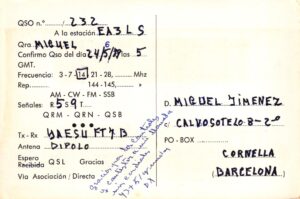 QSO n.º 232
A la estación. EA3LS
Qra MIGUEL
Confirmo Qso del día 24/5/79 a las 5
GMT.
Frecuencia: 3-7-14, 21-28, Mhz
Rep. 144-145, »
AM - CW - FM - SSB
Señales: R 5 S 9 T
QRM - QRN - QSB
Tx - Rx YAESU FT7B
Antena DIPOLO
Espero QSL Gracias
Recibida
Vía Asociación : Directa
Gracias por
un
73 +
D. MIGUEL JIMENEZ
CALVO SOTELO 8-2º
PO - BOX
CORNELLA
(BARCELONA)